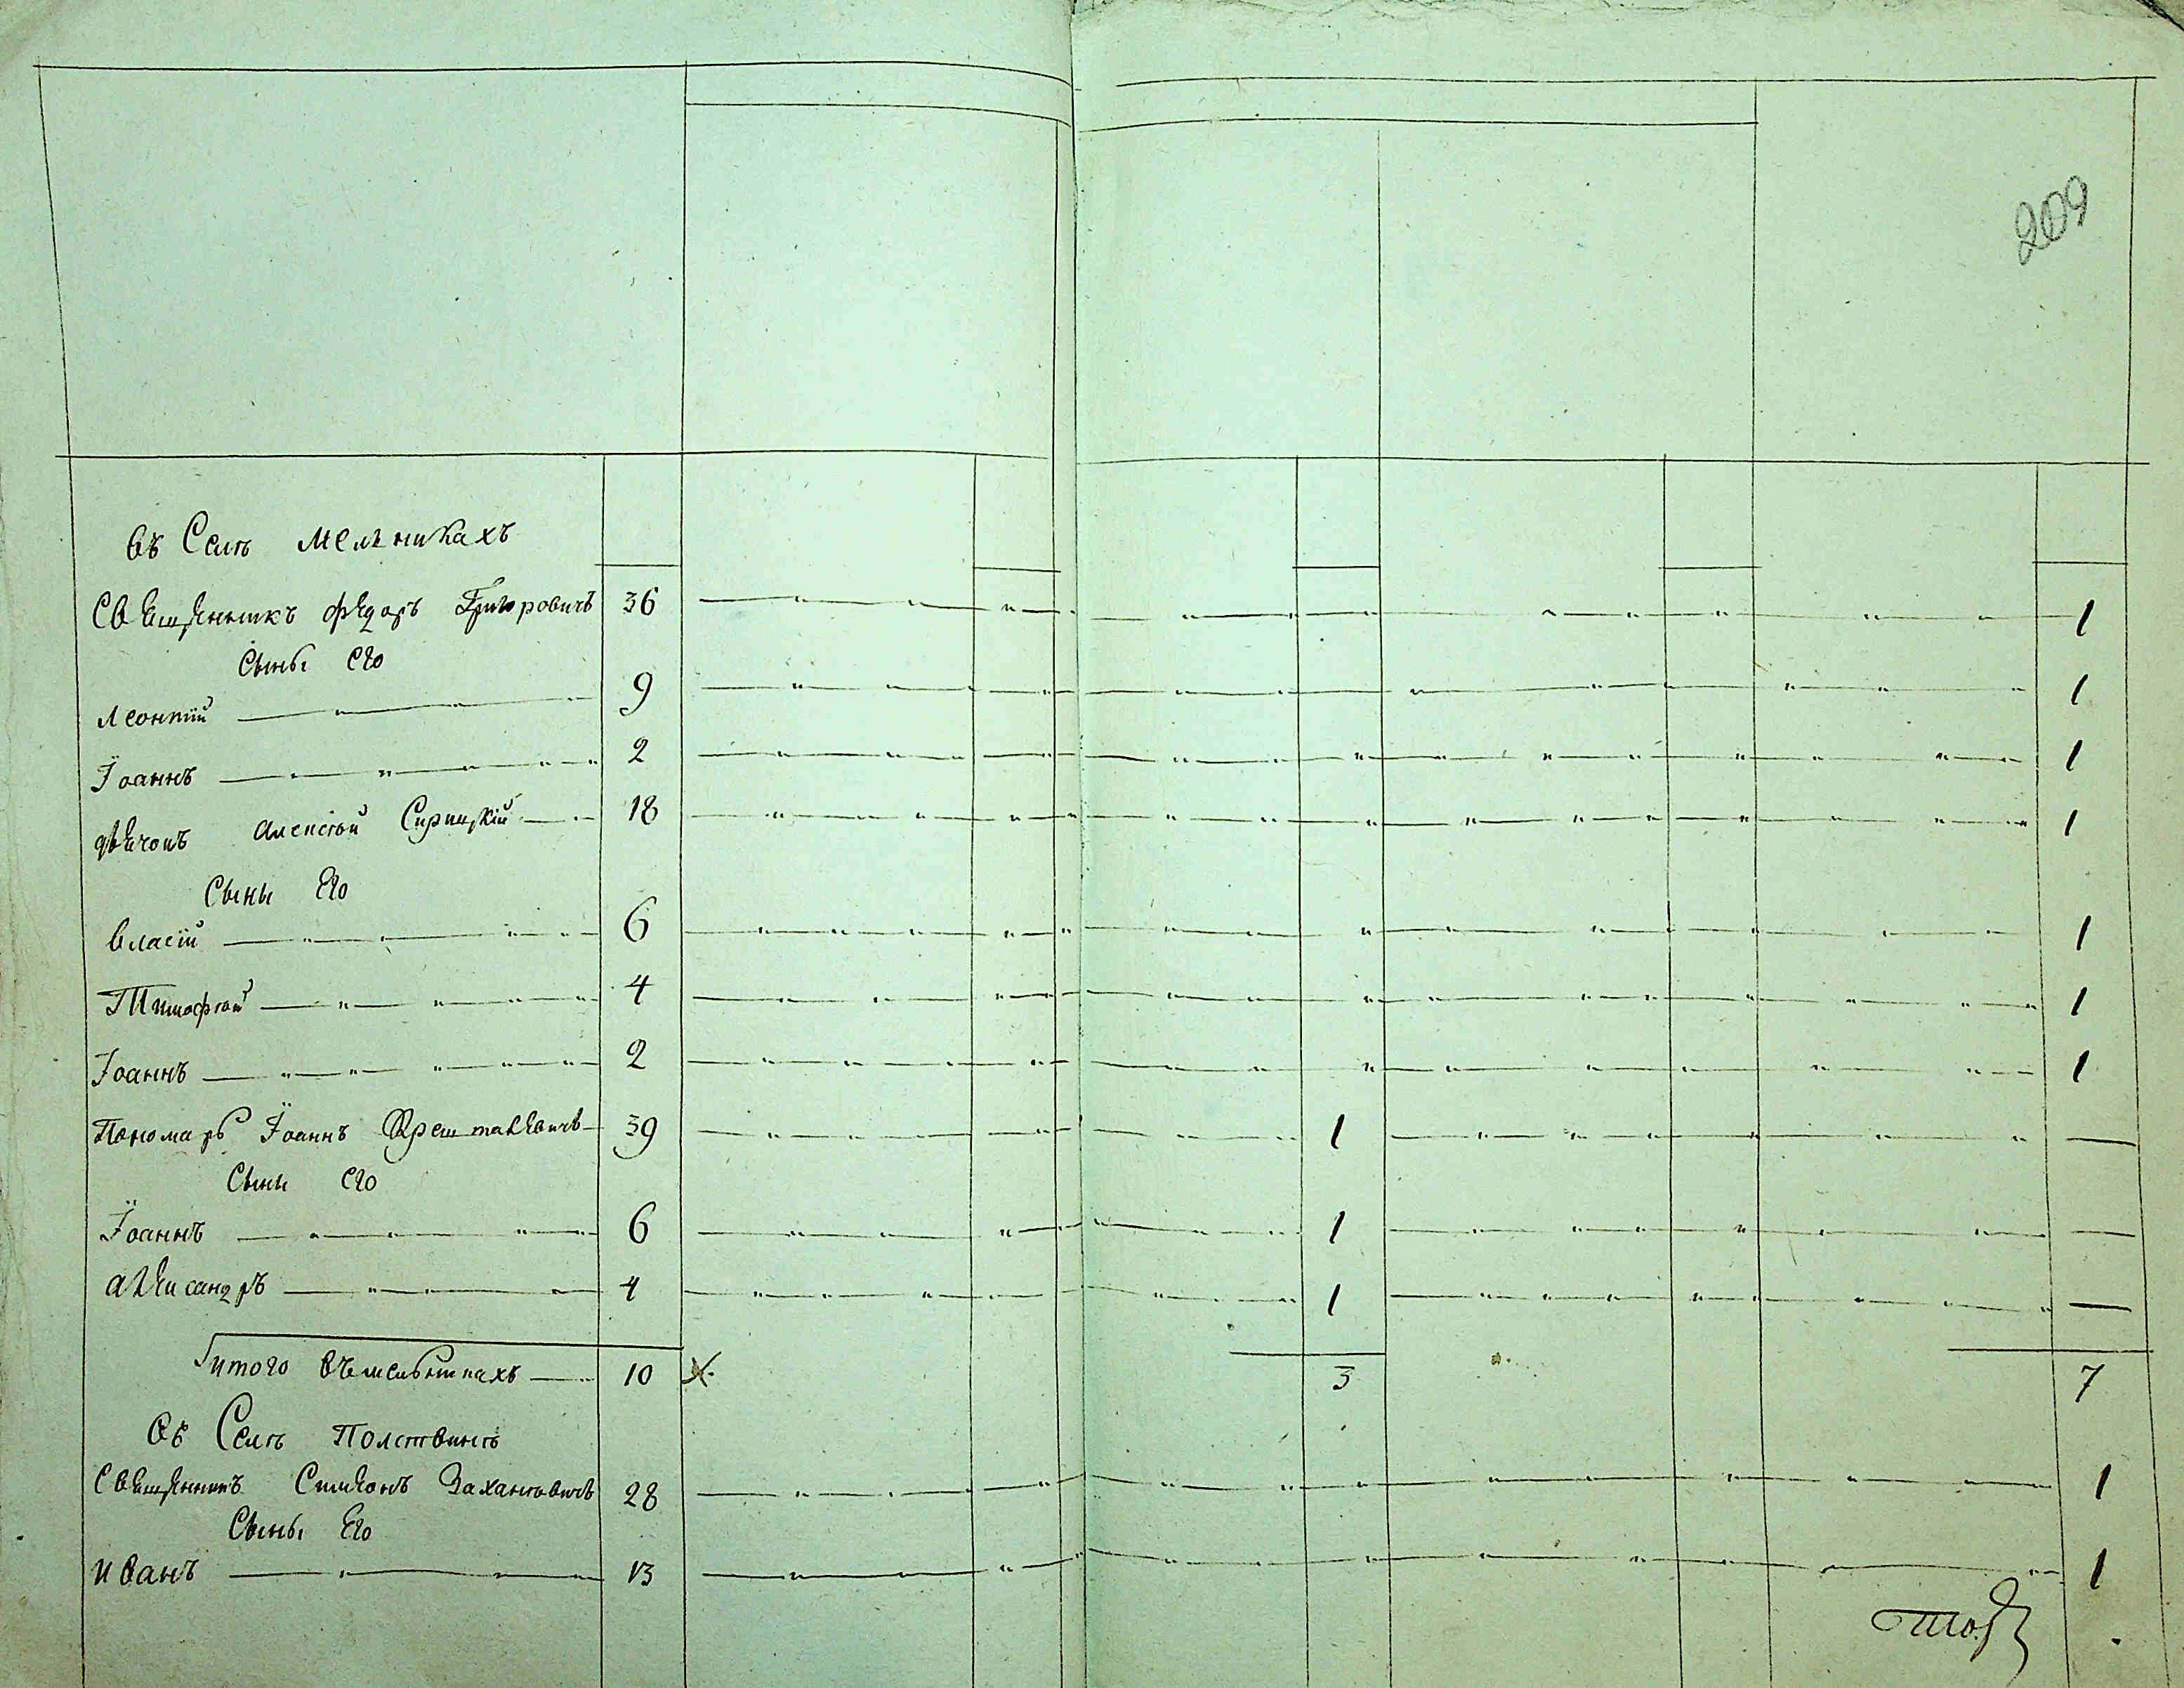 209
въ Селѣ мельникахъ
Священникъ Федоръ Григоровичъ 36 1
Сынъı его
Леонтій 9 1
Іоаннъ 2 1
дьячокъ Алексѣй 18 1
Сыны Его
Власій 6 1
Тимофѣй 4 1
Іоаннъ 2 1
Пономарь Іоаннъ 39 1
Сыны его
Іоаннъ 6 1
Александръ 4 1
итого въ мельникахъ 10 3 7
Въ Селѣ Полствинѣ
Священникъ Симеонъ 28 1
Сынъı Его
Иванъ 13 1